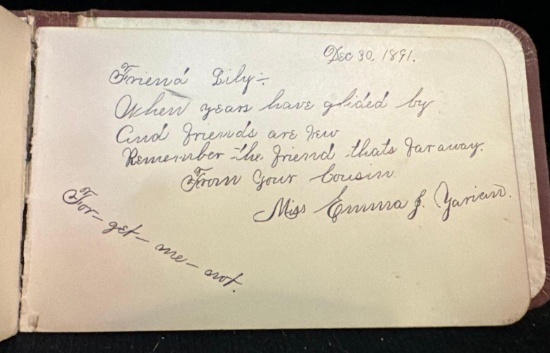 Dec 30, 1891.
Friend Lily:-
When years have glided by
And friends are few
Remember the friend thats far away.
From Your Cousin
Miss Emma J. Yarian.
For-get-me-not.